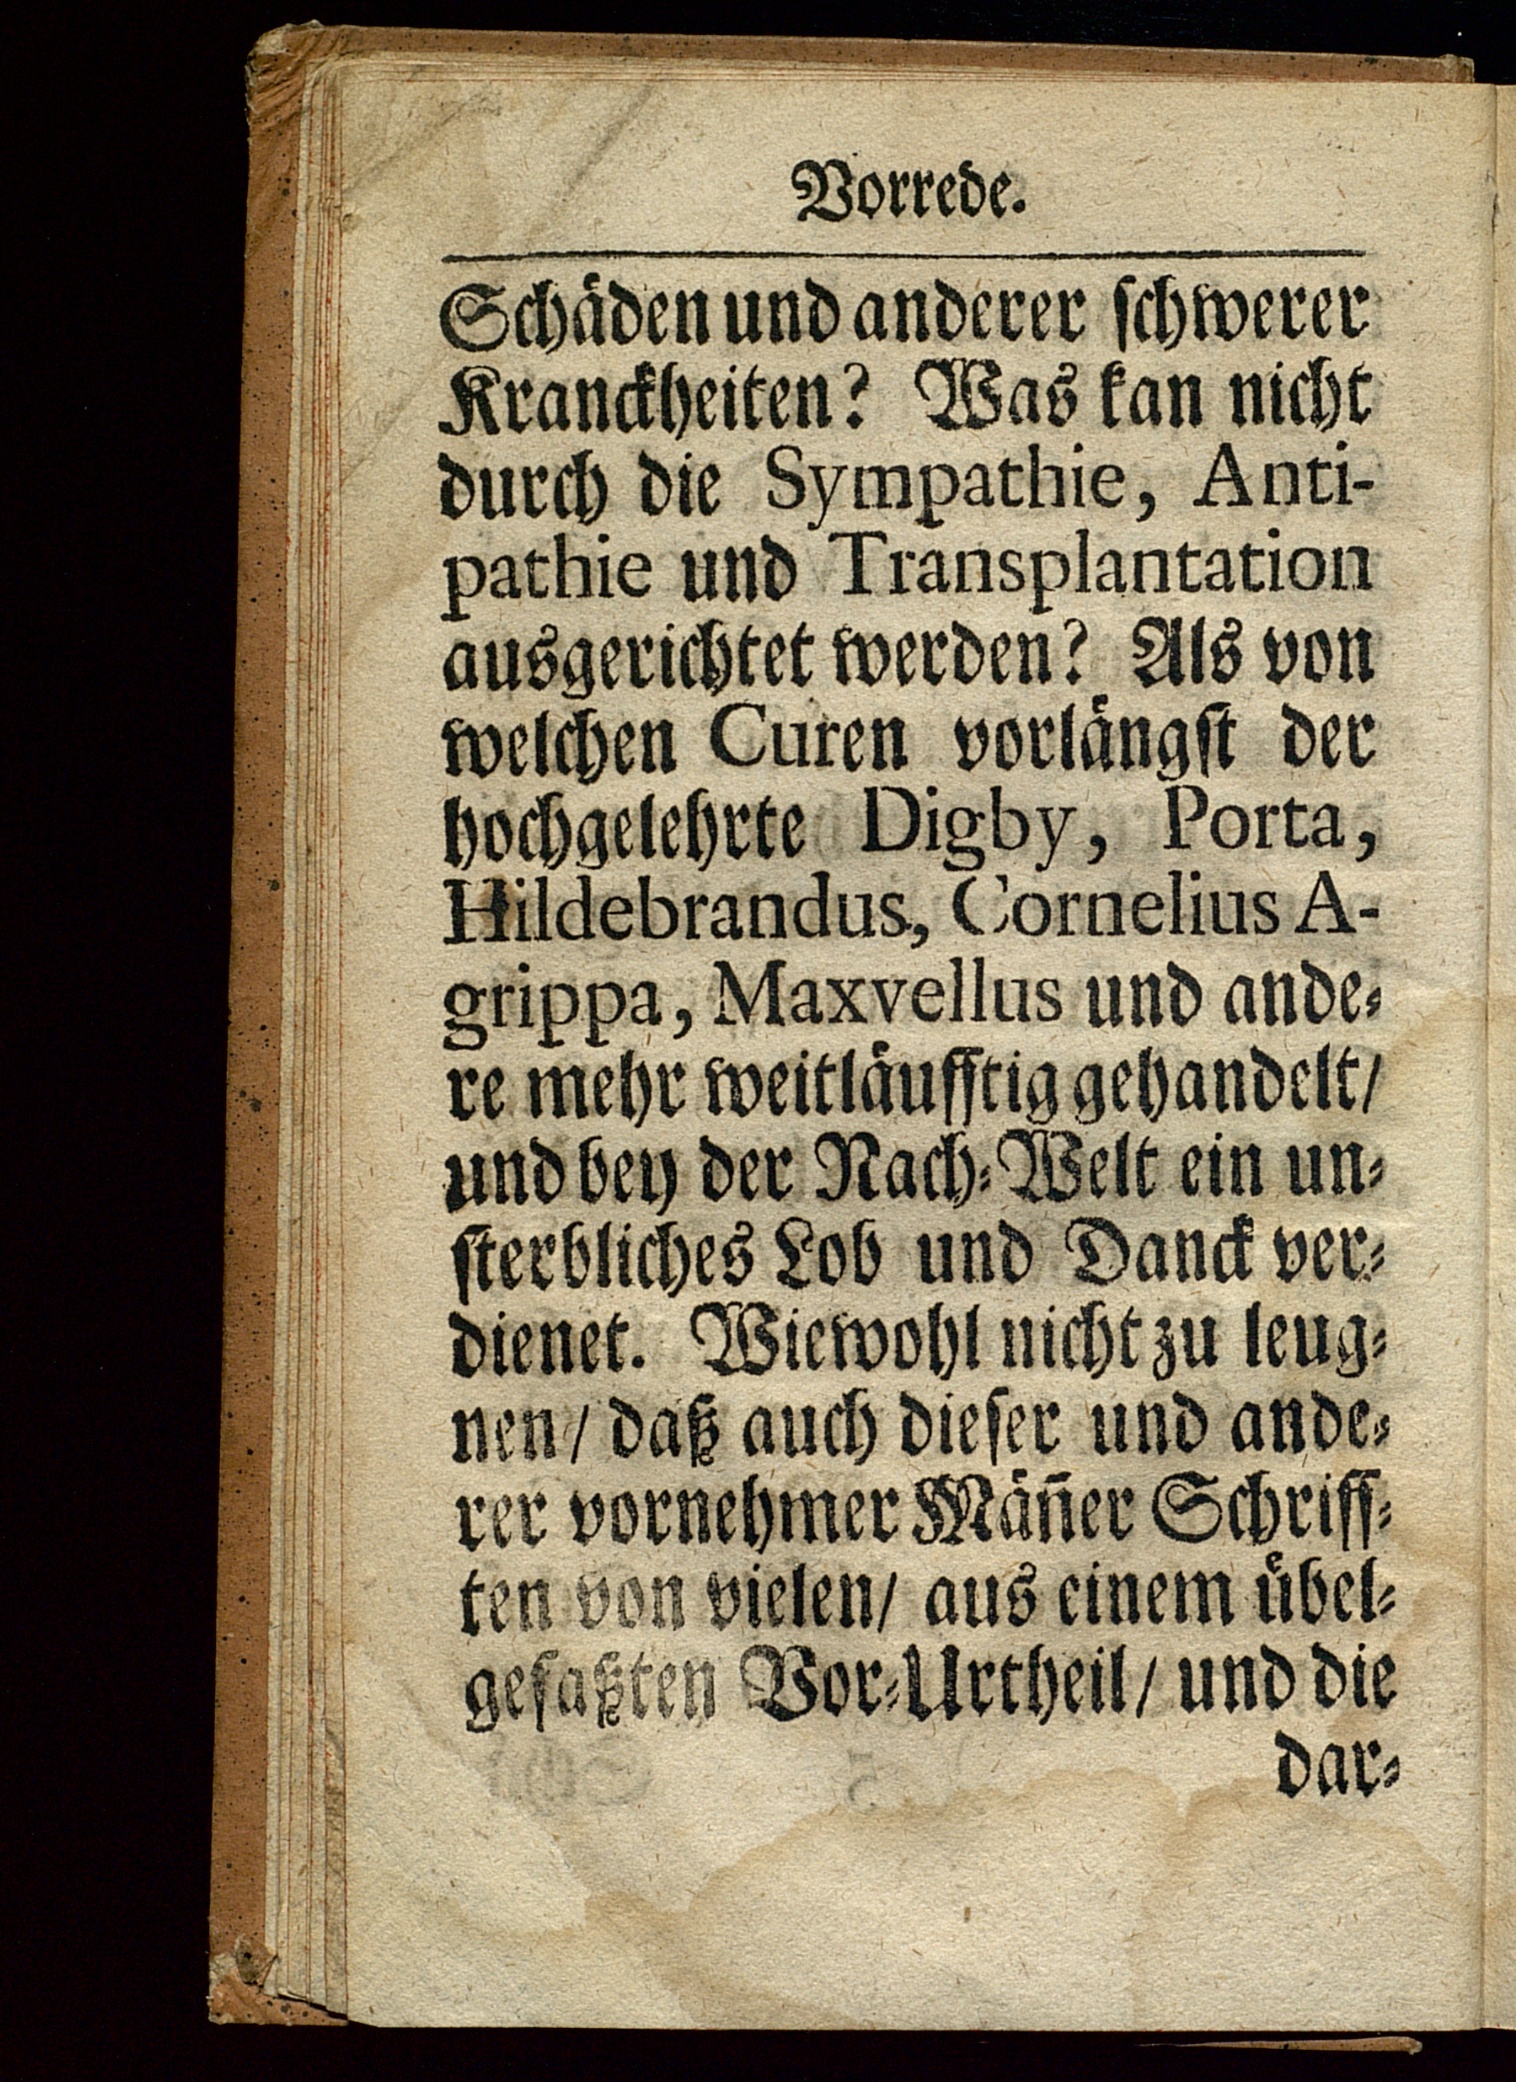 Vorrede.
Schäden und anderer ſchwerer
Kranckheiten? Was kan nicht
durch die Sympathie, Anti-
pathie und Transplantation
ausgerichtet werden? Als von
welchen Curen vorlängſt der
hochgelehrte Digby, Porta,
Hildebrandus, Cornelius A-
grippa, Maxvellus und ande⸗
re mehr weitläufftig gehandelt/
und bey der Nach⸗Welt ein un⸗
ſterbliches Lob und Danck ver⸗
dienet. Wiewohl nicht zu leug⸗
nen/ daß auch dieſer und ande⸗
rer vornehmer Mäñer Schriff⸗
ten von vielen/ aus einem übel⸗
gefaßten Vor⸗Urtheil/ und die
dar⸗